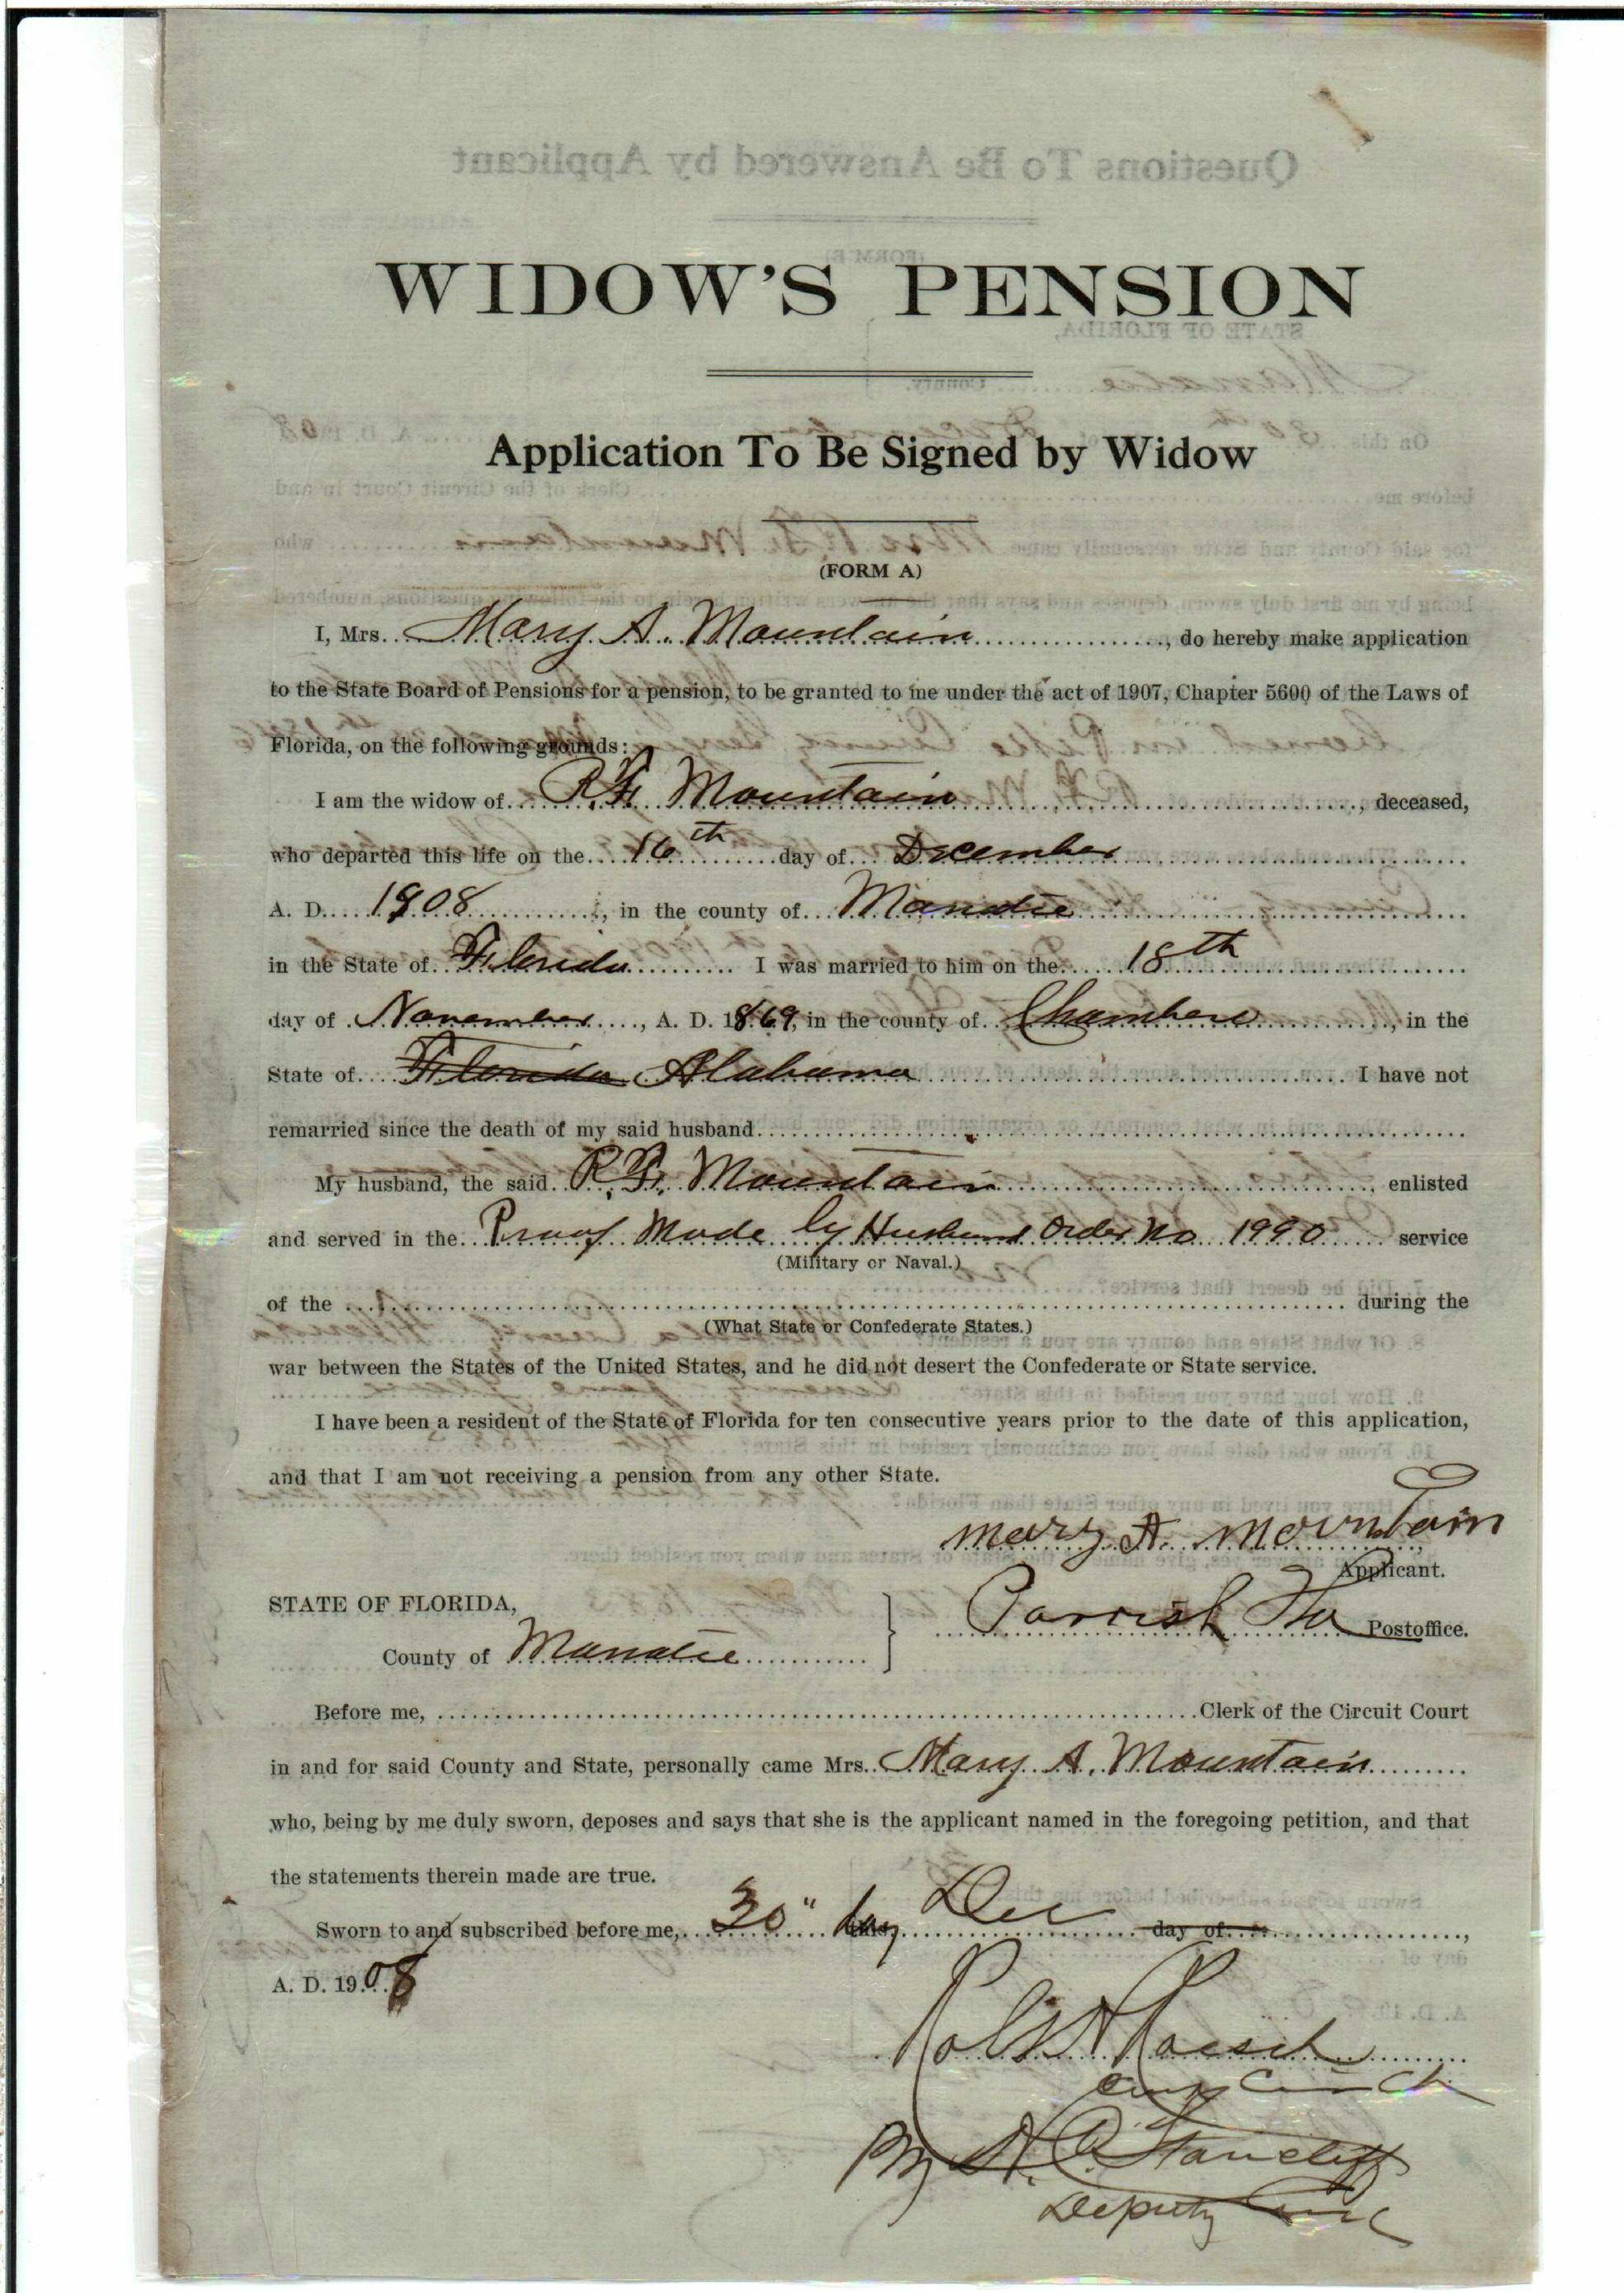 WIDOW'S PENSION
Application To Be Signed by Widow
(FORM A)
I, Mrs. Mary A. Mountain, do hereby make application
to the State Board of Pensions for a pension, to be granted to me under the act of 1907, Chapter 5600 of the Laws of
Florida, on the following grounds:
I am the widow of R. F. Mountain, deceased,
who departed this life on the 16th day of December
A. D. 1908, in the county of Manatee
in the State of Florida I was married to him on the 18th
day of November, A. D. 1869, in the county of Chambers, in the
State of Florida Alabama I have not
remarried since the death of my said husband
My husband, the said R. F. Mountain, enlisted
and served in the Proof Made by Husband Order No 1990 service
(Military or Naval.)
of the during the
(What State or Confederate States.)
war between the States of the United States, and he did not desert the Confederate or State service.
I have been a resident of the State of Florida for ten consecutive years prior to the date of this application,
and that I am not receiving a pension from any other State.
mary A. mountain
Applicant.
STATE OF FLORIDA,
Parrish Fla Postoffice.
County of Manatee
Before me, Clerk of the Circuit Court
in and for said County and State, personally came Mrs. Mary A. Mountain
who, being by me duly sworn, deposes and says that she is the applicant named in the foregoing petition, and that
the statements therein made are true.
Sworn to and subscribed before me, 30" day Dec day of
A. D. 1908
Robt H Roesch
By H. A. Stancliff
Deputy Clerk